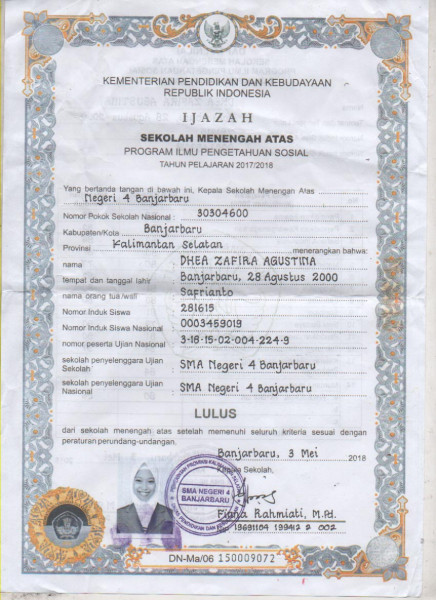 KEMENTERIAN PENDIDIKAN DAN KEBUDAYAAN
REPUBLIK INDONESIA
IJAZAH
SEKOLAH MENENGAH ATAS
PROGRAM ILMU PENGETAHUAN SOSIAL
TAHUN PELAJARAN 2017/2018
Yang bertanda tangan di bawah ini, Kepala Sekolah Menengah Atas
Negeri 4 Banjarbaru
Nomor Pokok Sekolah Nasional : 30304600
Kabupaten/Kota : Banjarbaru
Provinsi : Kalimantan Selatan menerangkan bahwa:
nama : DHEA ZAFIRA AGUSTINA
tempat dan tanggal lahir : Banjarbaru, 28 Agustus 2000
nama orang tua/wali : Saprianto
Nomor Induk Siswa : 281615
Nomor Induk Siswa Nasional : 0003459019
nomor peserta Ujian Nasional : 3-18-15-02-004-224-9
sekolah penyelenggara Ujian Sekolah : SMA Negeri 4 Banjarbaru
sekolah penyelenggara Ujian Nasional : SMA Negeri 4 Banjarbaru
LULUS
dari sekolah menengah atas setelah memenuhi seluruh kriteria sesuai dengan
peraturan perundang-undangan.
Banjarbaru, 3 Mei 2018
Kepala Sekolah,
SMA NEGERI 4
BANJARBARU
Rahmiati, M.Pd.
19691104 199412 2 002
DN-Ma/06 150009072